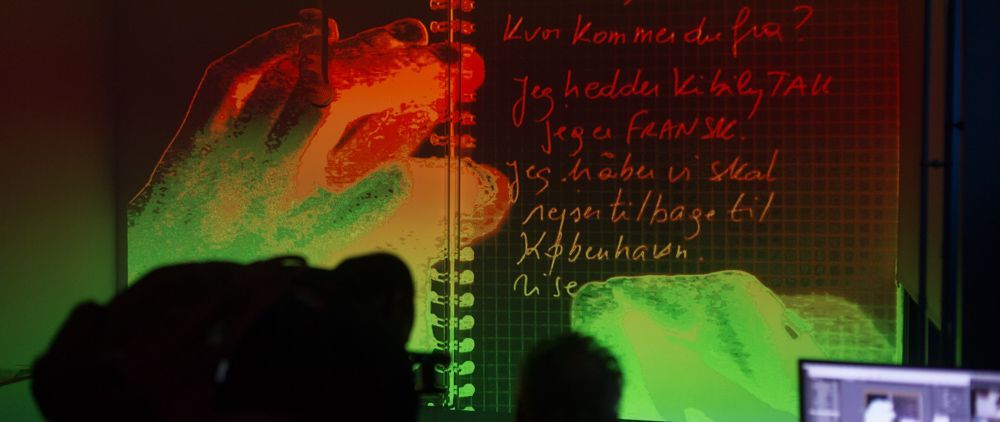 Kvor kommer du fra?
Jeg hedder Kibily TALL
Jeg er FRANSK.
Jeg håber vi skal
rejser tilbage til
København.
vi se